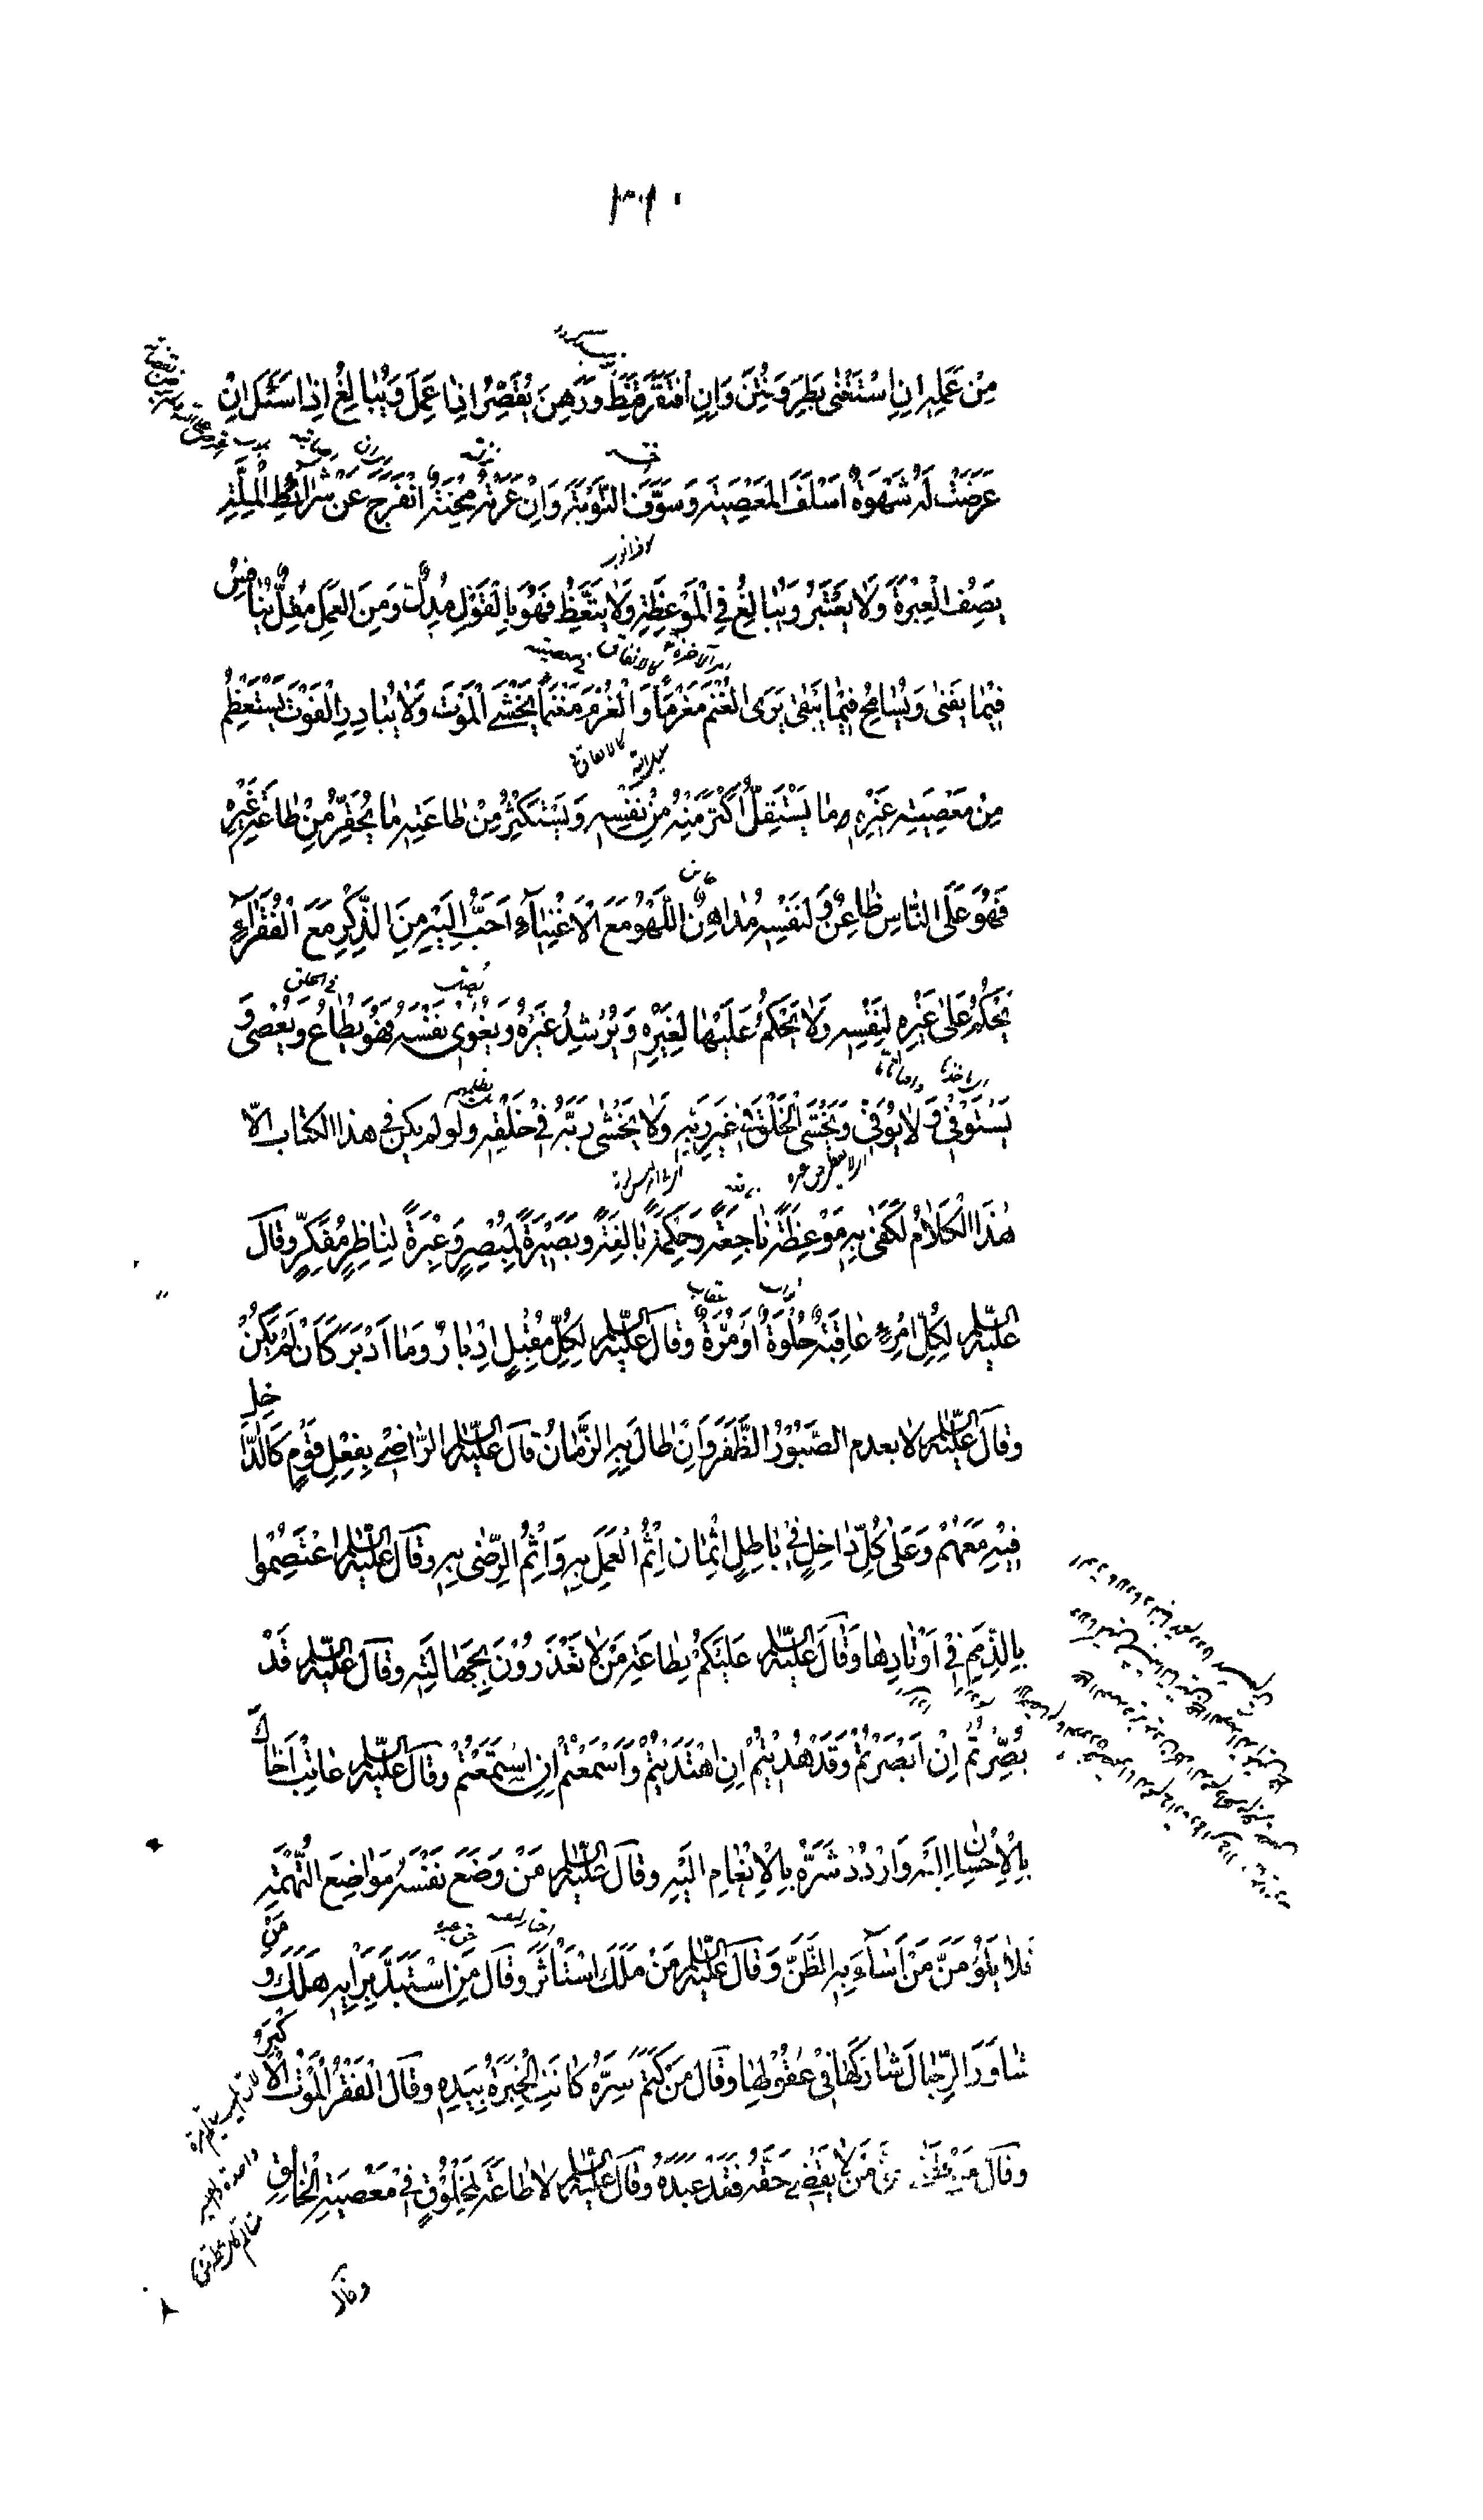 ٣١٠
مِنْ عَمَلِهِ اِنِ اسْتَغْنٰى بَطِرَ وَفُتِنَ وَاِنِ افْتَقَرَ قَنِطَ وَوَهِنَ يُقَصِّرُ اِذَا عَمِلَ وَيُبٰالِغُ اِذٰا سَئَلَ اِنْ
عَرَضَتْ لَهُ شَهْوَةٌ اَسْلَفَ الْمَعْصِيَةَ وَسَوَّفَ التَّوْبَةَ وَاِنْ عَرَتْهُ مِحْنَةٌ انْفَرَجَ عَنْ شَرٰائِطِ الْمِلَّةِ
يَصِفُ الْعِبْرَةَ وَلٰا يَعْتَبِرُ وَيُبٰالِغُ فِي الْمَوْعِظَةِ وَلٰا يَتَّعِظُ فَهُوَ بِالْقَوْلِ مُدِلٌّ وَمِنَ الْعَمَلِ مُقِلٌّ يُنٰافِسُ
فِيْمٰا يَفْنٰى وَيُسٰامِحُ فِيْمٰا يَبْقٰى يَرَى الْغُنْمَ مَغْرَمًا وَالْغُرْمَ مَغْنَمًا يَخْشَى الْمَوْتَ وَلٰا يُبٰادِرُ الْفَوْتَ يَسْتَعْظِمُ
مِنْ مَعْصِيَةِ غَيْرِهِ مٰا يَسْتَقِلُّ اَكْثَرَ مِنْهُ مِنْ نَفْسِهِ وَيَسْتَكْثِرُ مِنْ طٰاعَتِهِ مٰا يُحَقِّرُ مِنْ طٰاعَةِ غَيْرِهِ
فَهُوَ عَلَى النّٰاسِ طٰاعِنٌ وَلِنَفْسِهِ مُدٰاهِنٌ اللَّهْوُ مَعَ الْاَغْنِيٰآءِ اَحَبُّ اِلَيْهِ مِنَ الذِّكْرِ مَعَ الْفُقَرٰآءِ
يَحْكُمُ عَلٰى غَيْرِهِ لِنَفْسِهِ وَلٰا يَحْكُمُ عَلَيْهٰا لِغَيْرِهِ وَيُرْشِدُ غَيْرَهُ وَيُغْوِىْ نَفْسَهُ فَهُوَ يُطٰاعُ وَيَعْصِى وَ
يَسْتَوْفِىْ وَلٰا يُوْفِىْ وَيَخْشَى الْخَلْقَ فِىْ غَيْرِ رَبِّهِ وَلٰا يَخْشٰى رَبَّهُ فِىْ خَلْقِهِ ولو لم يكن فى هذا الكتاب الّا
هٰذَا الْكَلٰامُ لَكَفٰى بِهِ مَوْعِظَةً نٰاجِعَةً وَحِكْمَةً بٰالِغَةً وَبَصِيْرَةً لِمُبْصِرٍ وَعِبْرَةً لِنٰاظِرٍ مُفَكِّرٍ وَقٰالَ
عَلَيْهِ السَّلٰم لِكُلِّ امْرِءٍ عٰاقِبَةٌ حُلْوَةٌ اَوْ مُرَّةٌ وَقٰالَ عَلَيْهِ السَّلٰم لِكُلِّ مُقْبِلٍ اِدْبٰارٌ وَمٰا اَدْبَرَ كَاَنْ لَمْ يَكُنْ
وَقٰالَ عَلَيْهِ السَّلٰم لا يعدم الصَّبُوْرُ الظَّفَرَ وَاِنْ طٰالَ بِهِ الزَّمٰانُ قٰالَ عَلَيْهِ السَّلٰم الرّٰاضِىْ بِفِعْلِ قَوْمٍ كَالدّٰاخِلِ
فِيْهِ مَعَهُمْ وَعَلٰى كُلِّ دٰاخِلٍ فِىْ بٰاطِلٍ اِثْمٰانِ اِثْمُ الْعَمَلِ بِهِ وَاِثْمُ الرِّضٰى بِهِ وقٰالَ عَلَيْهِ السَّلٰم اعْتَصِمُوا
بِالذِّمَمِ فِىْ اَوْتٰادِهٰا وَقٰالَ عَلَيْهِ السَّلٰم عَلَيْكُمْ بِطٰاعَةِ مَنْ لٰا تُعْذَرُوْنَ بِجَهٰالَتِهِ وقٰالَ عَلَيْهِ السَّلٰم قَدْ
بُصِّرْتُمْ اِنْ اَبْصَرْتُمْ وَقَدْ هُدِيْتُمْ اِنِ اهْتَدَيْتُمْ وَاُسْمِعْتُمْ اِنِ اسْتَمَعْتُمْ وقٰالَ عَلَيْهِ السَّلٰم عٰاتِبْ اَخٰاكَ
بِالْاِحْسٰانِ اِلَيْهِ وَارْدُدْ شَرَّهُ بِالْاِنْعٰامِ اِلَيْهِ وقٰالَ عَلَيْهِ السَّلٰم مَنْ وَضَعَ نَفْسَهُ مَوٰاضِعَ التُّهْمَةِ
فَلٰا يَلُوْمَنَّ مَنْ اَسٰآءَ بِهِ الظَّنَّ وَقٰالَ عَلَيْهِ السَّلٰم مَنْ مَلَكَ اسْتَاْثَرَ وقٰالَ مَنِ اسْتَبَدَّ بِرَاْيِهِ هَلَكَ وَمَنْ
شٰاوَرَ الرِّجٰالَ شٰارَكَهٰا فِىْ عُقُوْلِهٰا وقٰالَ مَنْ كَتَمَ سِرَّهُ كٰانَتِ الْخِيَرَةُ بِيَدِهِ وقٰالَ الْفَقْرُ الْمَوْتُ الْاَكْبَرُ
وقٰالَ مَنْ قَضٰى حَقَّ مَنْ لٰا يَقْضِىْ حَقَّهُ فَقَدْ عَبَدَهُ وقٰالَ عَلَيْهِ السَّلٰم لٰا طٰاعَةَ لِمَخْلُوْقٍ فِىْ مَعْصِيَةِ الْخٰالِقِ
وقال